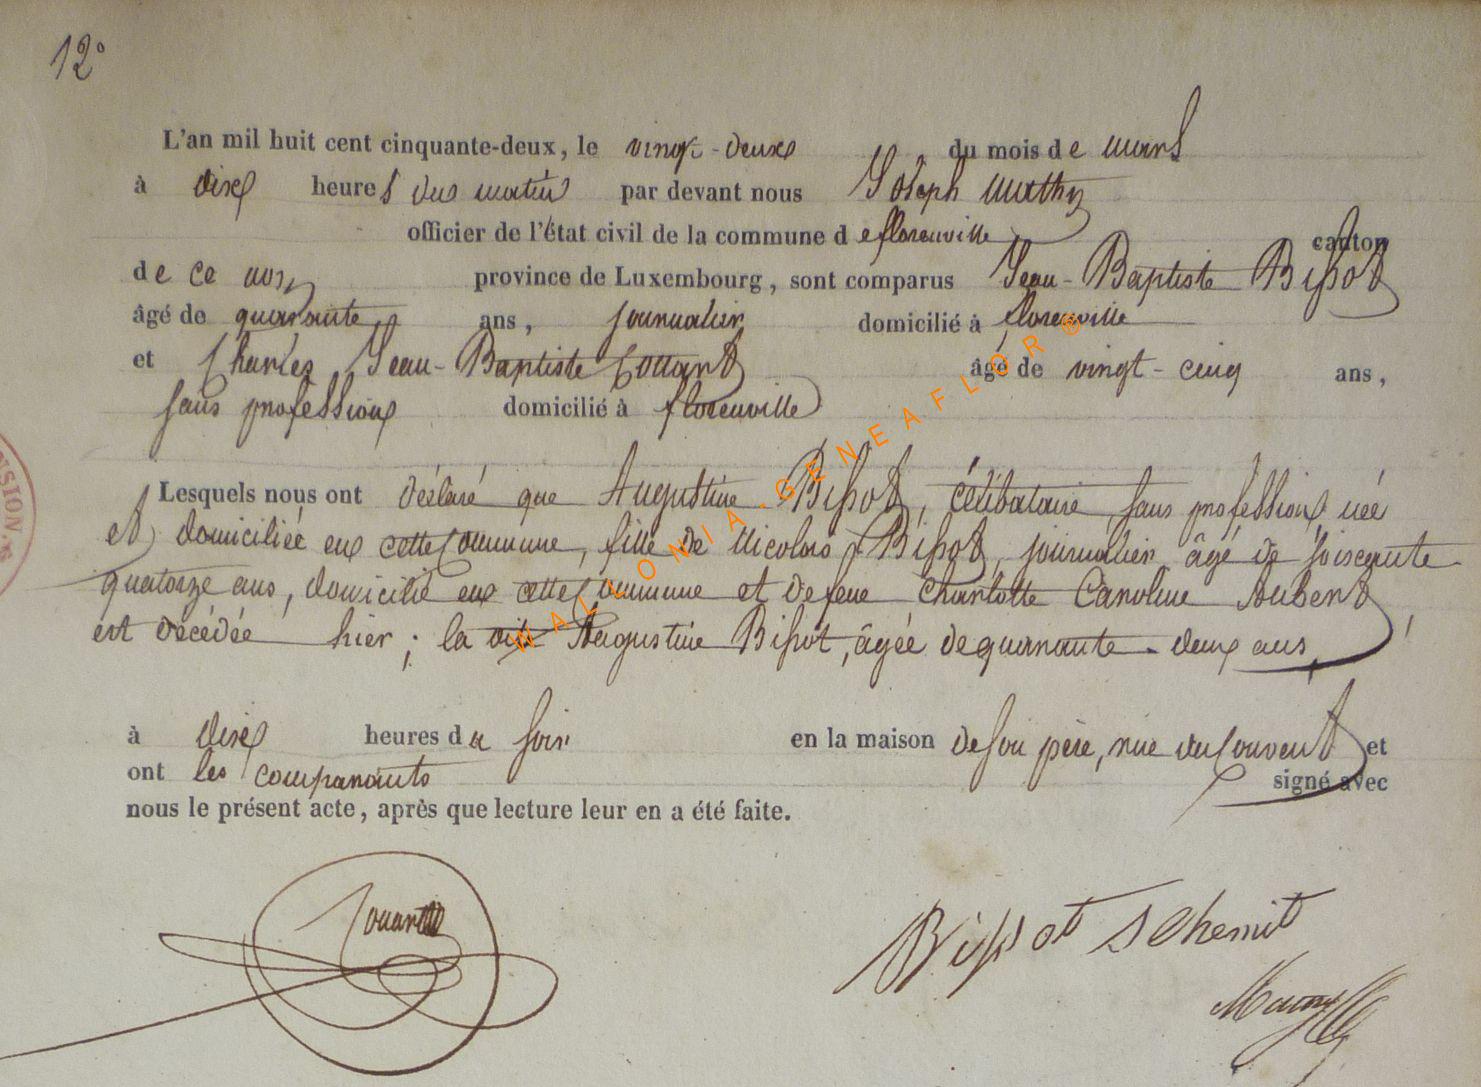 12°
L'an mil huit cent cinquante-deux, le vingt-deux du mois de mars
à dix heures du matin par devant nous Joseph Mathy
officier de l'état civil de la commune de florenville canton
de ce nom province de Luxembourg, sont comparus Jean-Baptiste Bissot
âgé de quarante ans, journalier domicilié à florenville
et Charles Jean-Baptiste Couard âgé de vingt-cinq ans,
sans profession domicilié à florenville
Lesquels nous ont déclaré que Augustine Bissot, célibataire, sans profession, née
et domiciliée en cette Commune, fille de Nicolas Bissot, journalier âgé de soixante
quatorze ans, domicilié en cette Commune et de feue Charlotte Caroline Aubert
est décédée hier; la dite Augustine Bissot, âgée de quarante-deux ans,
à dix heures du soir en la maison de son père, rue du Couvent et
ont les comparants signé avec
nous le présent acte, après que lecture leur en a été faite.
Bissot Schemit
WALLONIA-GENEAFLOR®
NSION.